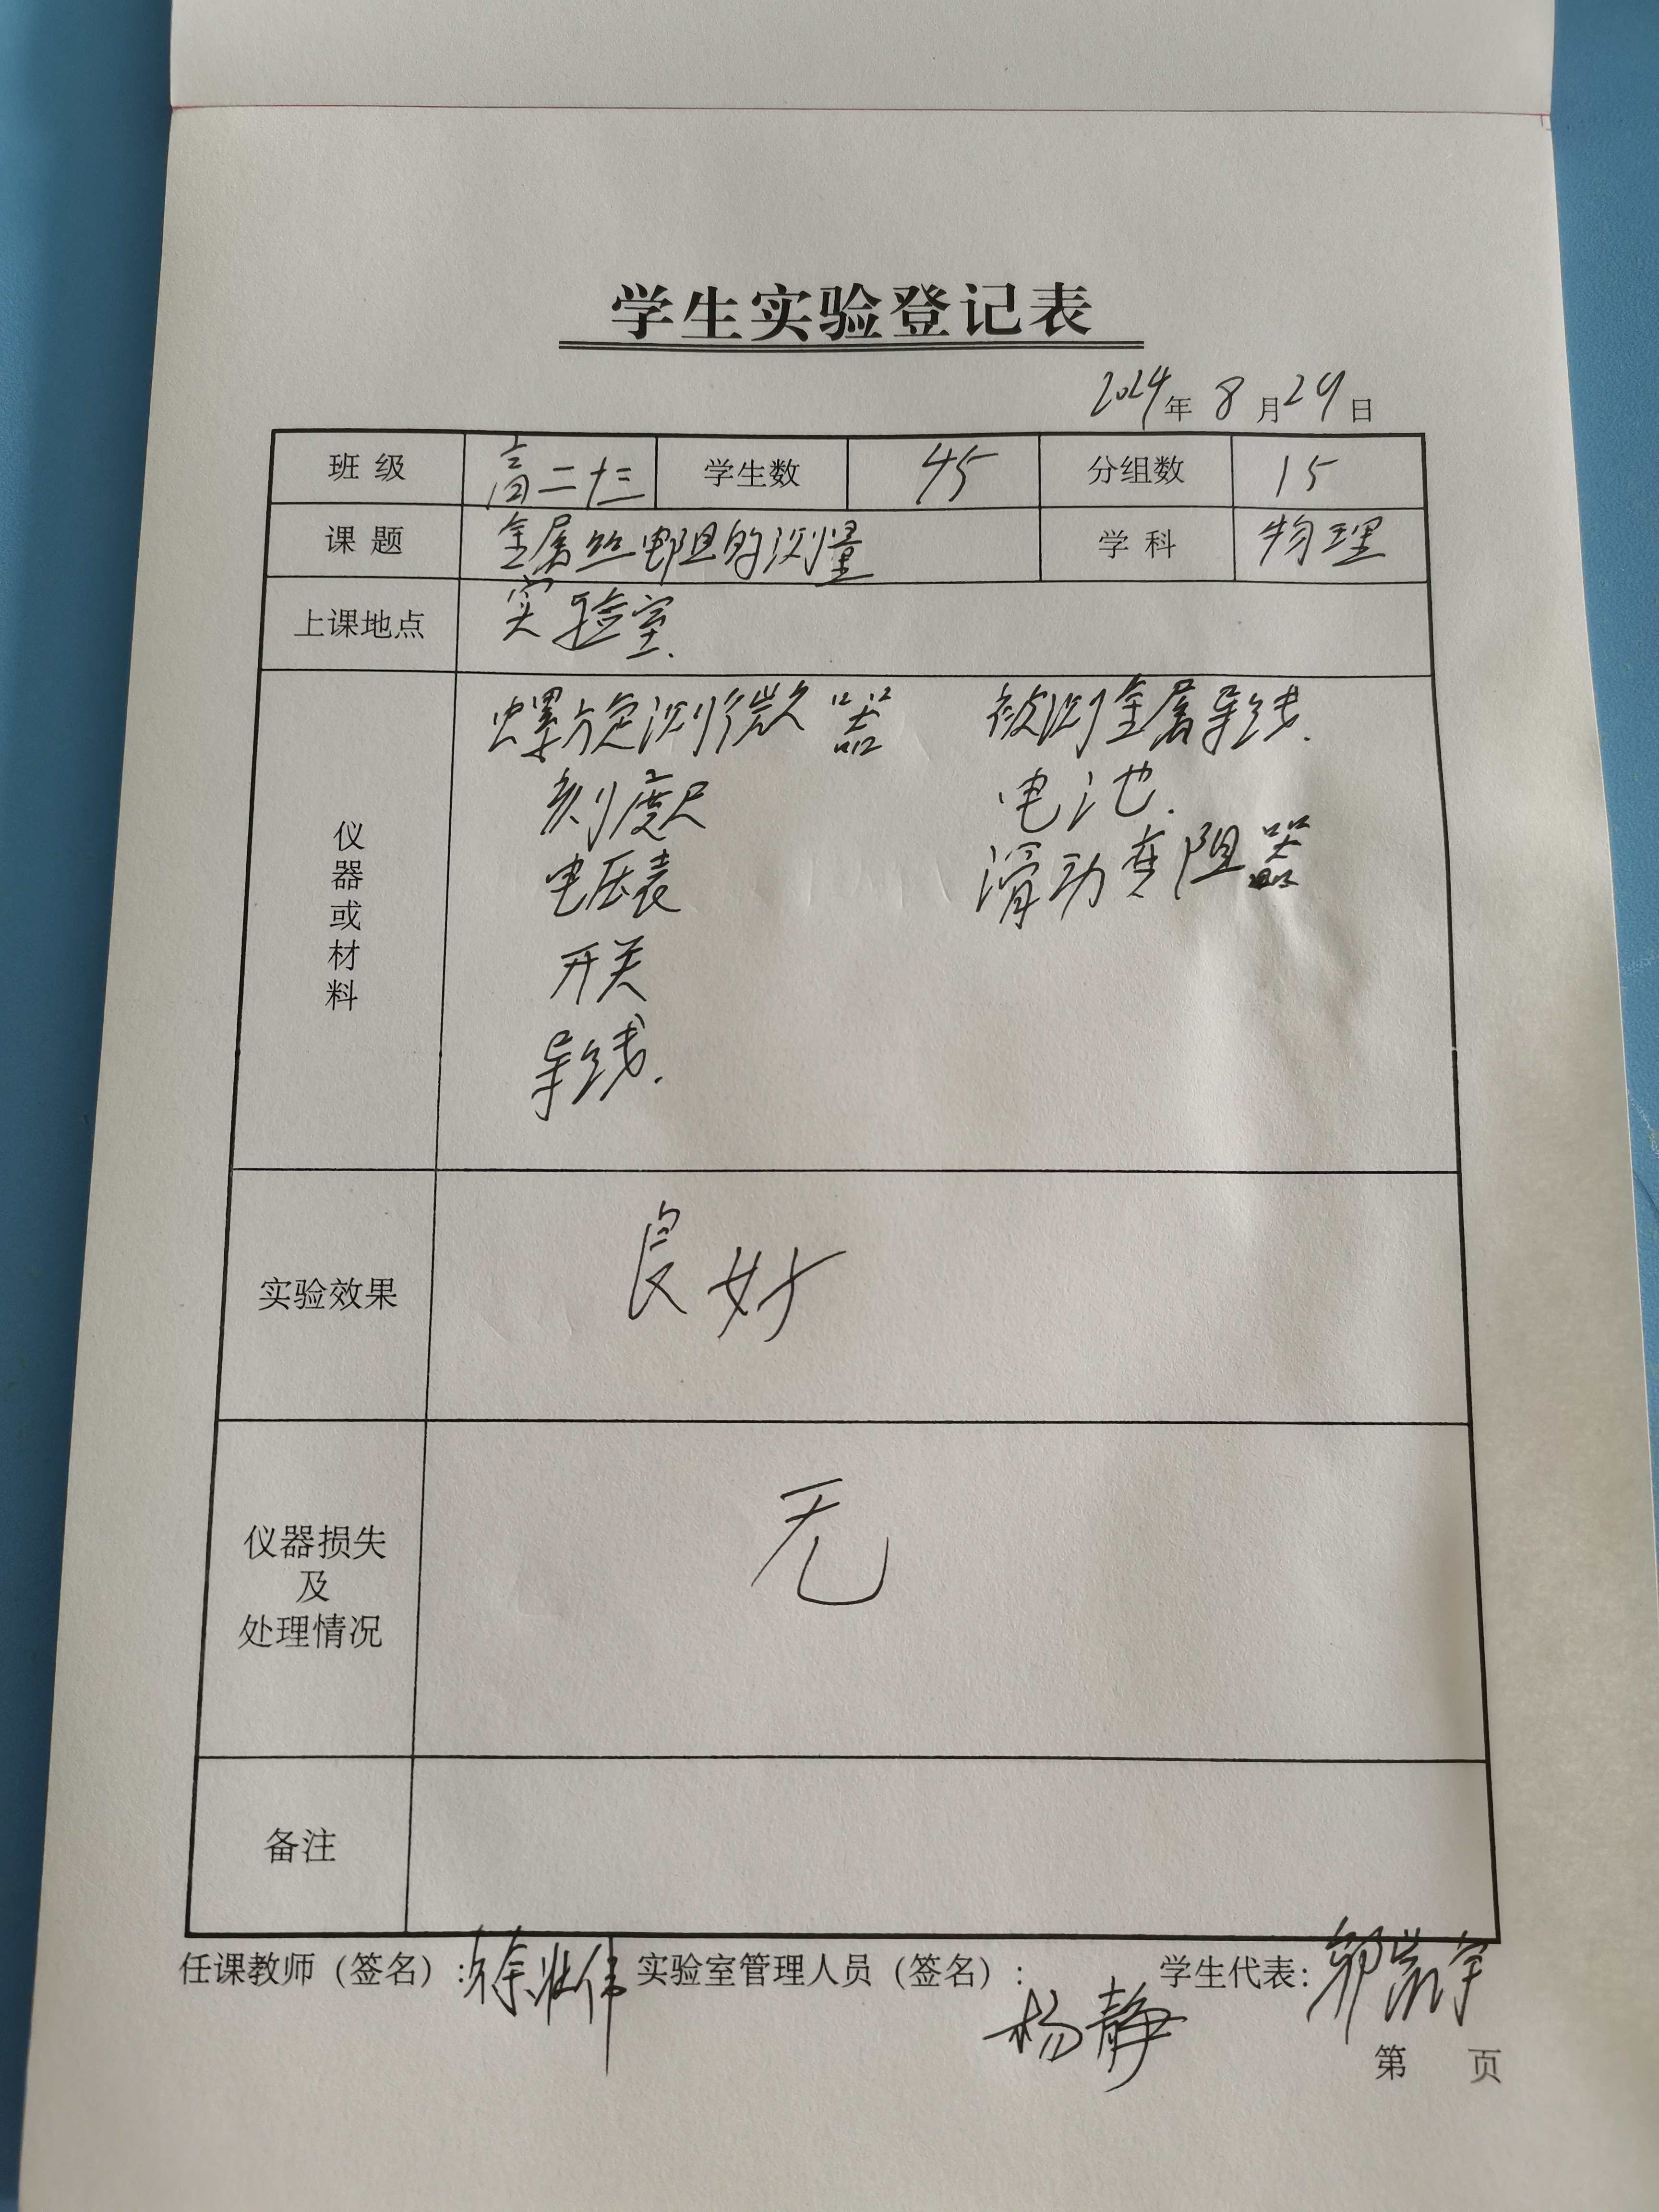 学生实验登记表
2024年 8 月 29 日
班 级 高二十三 学生数 45 分组数 15
课 题 金属丝电阻的测量 学 科 物理
上课地点 实验室.
仪器或材料
螺旋测微器 被测金属导线.
刻度尺 电池.
电压表 滑动变阻器
开关
导线.
实验效果 良好
仪器损失
及
处理情况
无
备注
任课教师（签名）: 徐壮伟 实验室管理人员（签名）: 杨静 学生代表:
第 页